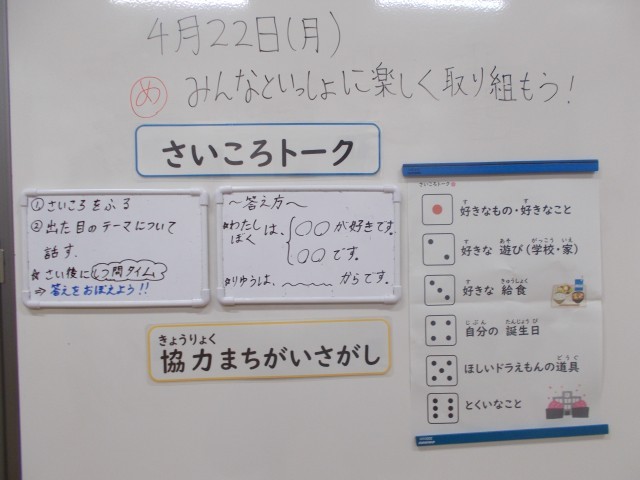 4月22日(月)
め みんなといっしょに楽しく取り組もう!
さいころトーク
①さいころをふる
②出た目のテーマについて
話す.
★さい後に
⇒答えをおぼえよう!!
〜答え方〜
★わたし
ぼく は、
○○が好きです。
○○です。
★りゆうは、〜〜〜からです。
きょうりょく
協力まちがいさがし
さいころトーク
す す
好きなもの・好きなこと
す あそ がっこう いえ
好きな 遊び(学校・家)
す きゅうしょく
好きな 給食
じぶん たんじょうび
自分の 誕生日
どうぐ
ほしいドラえもんの道具
とくいなこと